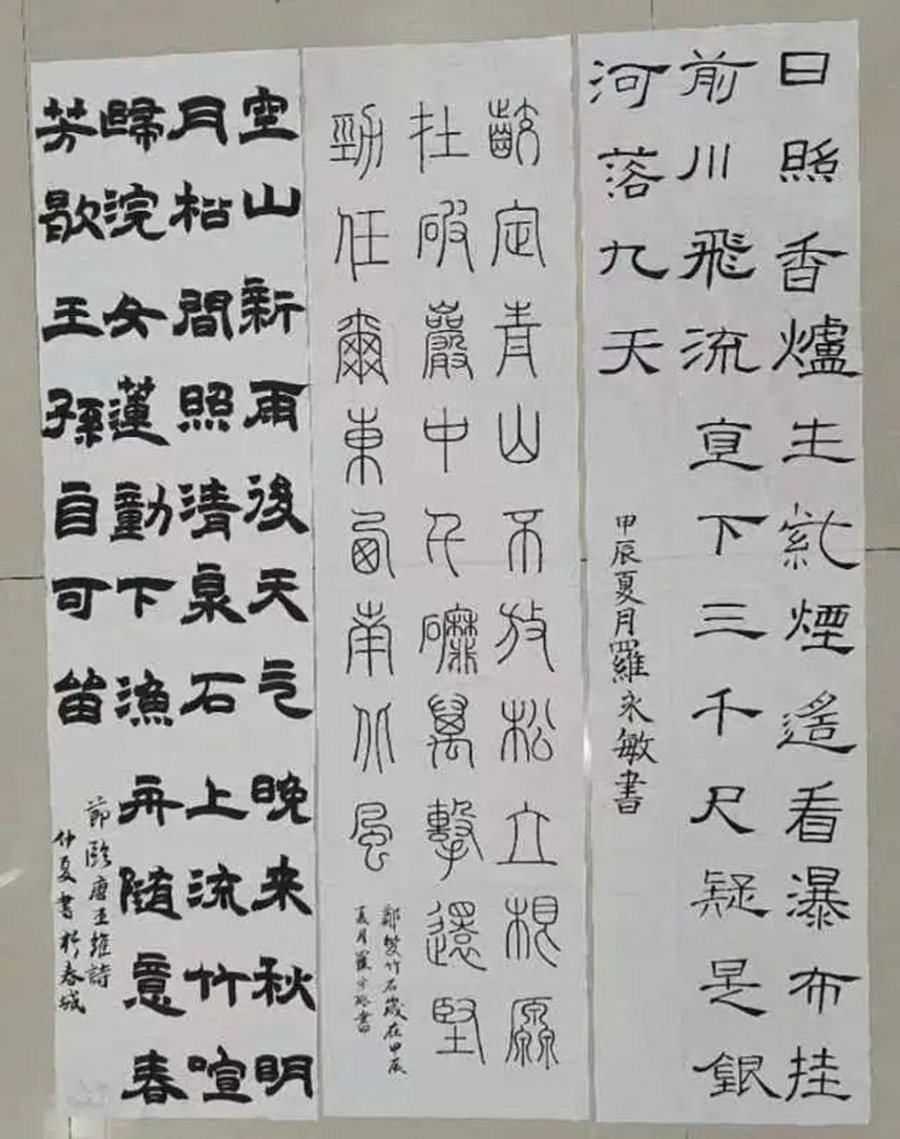 日照香爐生紫煙遙看瀑布挂
前川飛流直下三千尺疑是銀
河落九天
甲辰夏月羅永敏書
齩定青山不放松立根原
在破巖中千磨萬擊還堅
勁任爾東西南北風
鄭燮竹石歲在甲辰
夏月羅永敏書
空山新雨後天气晚来秋明
月松間照清泉石上流竹喧
歸浣女蓮動下漁舟随意春
芳歇王孫自可留
節臨唐王維詩
仲夏書於春城